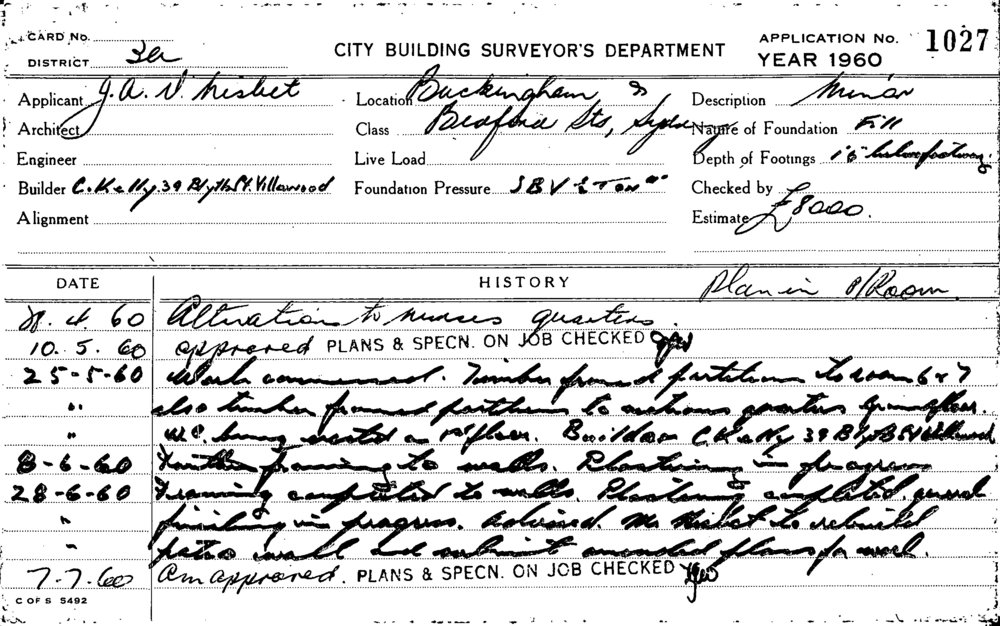 CARD No.
DISTRICT 3a
CITY BUILDING SURVEYOR'S DEPARTMENT
APPLICATION No. 1027
YEAR 1960
Applicant J. A. V. Nisbet
Location Buckingham &
Description Minor
Architect
Class Bedford Sts, Sydney
Nature of Foundation Fill
Engineer
Live Load
Depth of Footings 15" below footway
Builder C. Kelly 39 Blyth St. Villawood
Foundation Pressure S B V ½ Ton
Checked by
Alignment
Estimate £8000.
DATE HISTORY Plan in P/Room
4. 60 Alterations to nurses quarters.
10. 5. 60 approved PLANS & SPECN. ON JOB CHECKED
25-5-60 Work commenced. Timber framed partitions to room 6 & 7
" also timber framed partitions to quarters Ground floor.
" W.C. being erected on 1st floor. Builder C. Kelly 39 Blyth St Villawood
8-6-60 Further framing to walls. Plastering in progress
28-6-60 Framing completed to walls. Plastering completed, general
" finishing in progress. Advised Mr Nisbet to rebuild
" wall and submit amended plans for work.
7-7-60 Am approved. PLANS & SPECN. ON JOB CHECKED
C OF S 5492